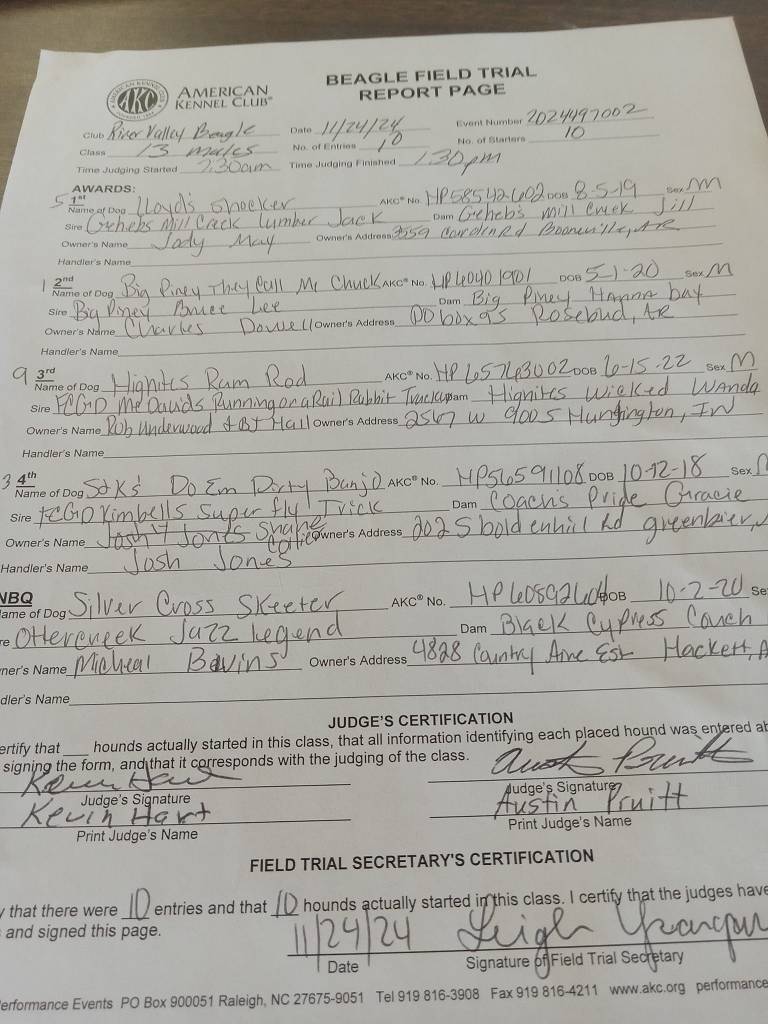 AKC
AMERICAN KENNEL CLUB®
BEAGLE FIELD TRIAL
REPORT PAGE
Club River Valley Beagle Date 11/24/24 Event Number 2024497002
Class 13 males No. of Entries 10 No. of Starters 10
Time Judging Started 7:30am Time Judging Finished 1:30pm
AWARDS:
5 1st
Name of Dog Lloyds Shocker AKC® No. HP58542602 DOB 8-5-19 Sex M
Sire Gehebs Mill Creek Lumber Jack Dam Geheb's Mill Creek Jill
Owner's Name Jody May Owner's Address 3559 Rd Booneville, AR
Handler's Name
1 2nd
Name of Dog Big Piney They Call Me Chuck AKC® No. HP60401901 DOB 5-1-20 Sex M
Sire Big Piney Bruce Lee Dam Big Piney Hanna bay
Owner's Name Charles Dowell Owner's Address PO box 95 Rosebud, AR
Handler's Name
9 3rd
Name of Dog Hignites Ram Rod AKC® No. HP65763002 DOB 6-15-22 Sex M
Sire FCGD McDavids Running on a Rail Rabbit Dam Hignites Wicked Wanda
Owner's Name Rob Underwood & BJ Hall Owner's Address 2567 W 900 S Huntington, IN
Handler's Name
3 4th
Name of Dog S&Ks' Do Em Dirty Banjo AKC® No. HP56591108 DOB 10-12-18 Sex
Sire FCGD Kimbells Super fly Trick Dam Coach's Pride Gracie
Owner's Name Josh Jones Shane Owner's Address 202 S bolden hill Rd greenbrier,
Handler's Name Josh Jones
NBQ
ame of Dog Silver Cross Skeeter AKC® No. DOB 10-2-20 Se
re Ottercreek Jazz Legend Dam Black Cypress Conch
ner's Name Micheal Bevins Owner's Address 4828 Country Aire Est Hackett, A
dler's Name
JUDGE'S CERTIFICATION
ertify that ___ hounds actually started in this class, that all information identifying each placed hound was entered
signing the form, and that it corresponds with the judging of the class.
Kevin Hart Austin Pruitt
Judge's Signature Judge's Signature
Kevin Hart Austin Pruitt
Print Judge's Name Print Judge's Name
FIELD TRIAL SECRETARY'S CERTIFICATION
y that there were 10 entries and that 10 hounds actually started in this class. I certify that the judges have
and signed this page.
11/24/24 Leigh
Date Signature of Field Trial Secretary
erformance Events PO Box 900051 Raleigh, NC 27675-9051 Tel 919 816-3908 Fax 919 816-4211 www.akc.org performance